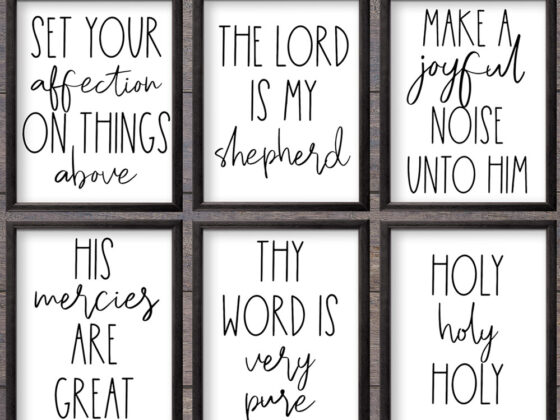 SET YOUR
affection
ON THINGS
above
THE LORD
IS MY
shepherd
MAKE A
joyful
NOISE
UNTO HIM
HIS
mercies
ARE
GREAT
THY
WORD IS
very
pure
HOLY
holy
HOLY